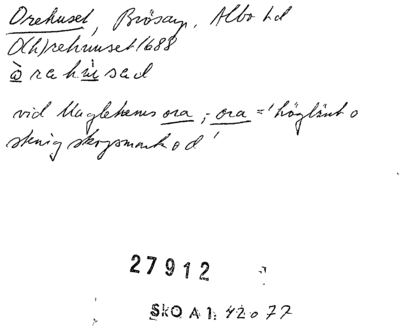 Orehuset, Brösarp, Albo hd
O(h)rehuuset 1688
òrahùsad
vid Maglehems ora; ora = 'högländt o
stenig skogsmark od'
27912
SKO A1: 42 o 77